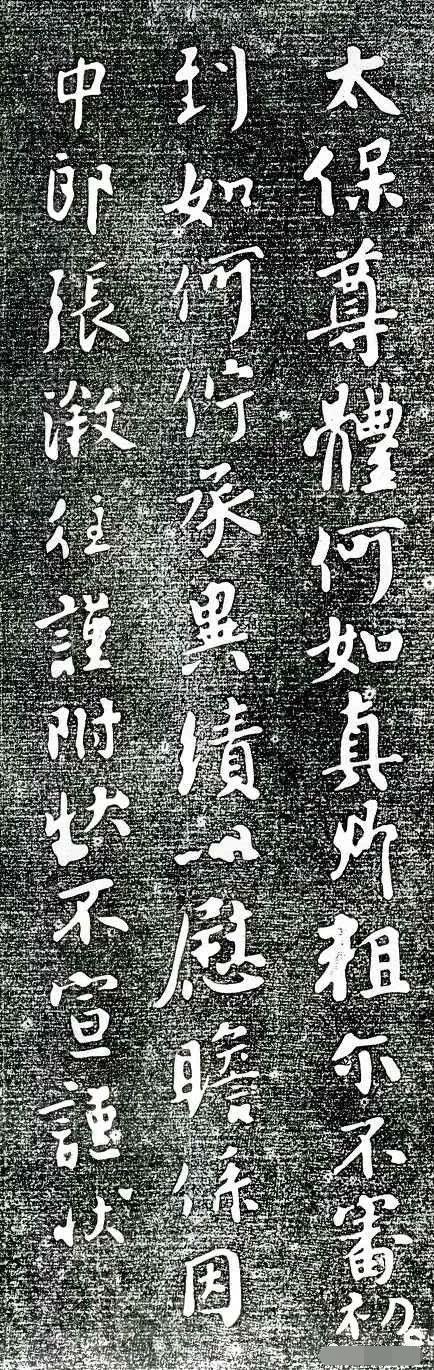 太保尊體何如真卿粗尔不審初
到如何佇承異績以慰瞻係因
中郎張澂往謹附狀不宣謹狀